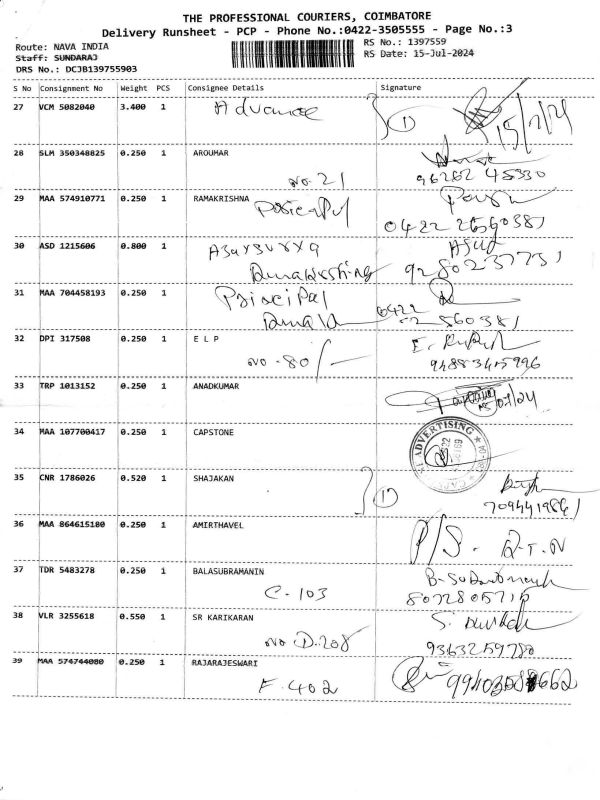 THE PROFESSIONAL COURIERS, COIMBATORE
Delivery Runsheet - PCP - Phone No.:0422-3505555 - Page No.:3
Route: NAVA INDIA
RS No.: 1397559
Staff: SUNDARAJ
RS Date: 15-Jul-2024
DRS No.: DCJB139755903
S No Consignment No Weight PCS Consignee Details Signature
27 VCM 5082040 3.400 1 Advance 1 15/7/24
28 SLM 350348825 0.250 1 AROUMAR
No. 21 96262 45330
29 MAA 574910771 0.250 1 RAMAKRISHNA
0422 2560381
30 ASD 1215606 0.800 1
9280237731
31 MAA 704458193 0.250 1 Principal 0422
2560381
32 DPI 317508 0.250 1 E L P
No-80/-
33 TRP 1013152 0.250 1 ANADKUMAR
34 MAA 107700417 0.250 1 CAPSTONE
ADVERTISING
35 CNR 1786026 0.520 1 SHAJAKAN 1
36 MAA 864615180 0.250 1 AMIRTHAVEL
37 TDR 5483278 0.250 1 BALASUBRAMANIN
C-103 8072805715
38 VLR 3255618 0.550 1 SR KARIKARAN
No D.208 9363259780
39 MAA 574744080 0.250 1 RAJARAJESWARI
F. 402